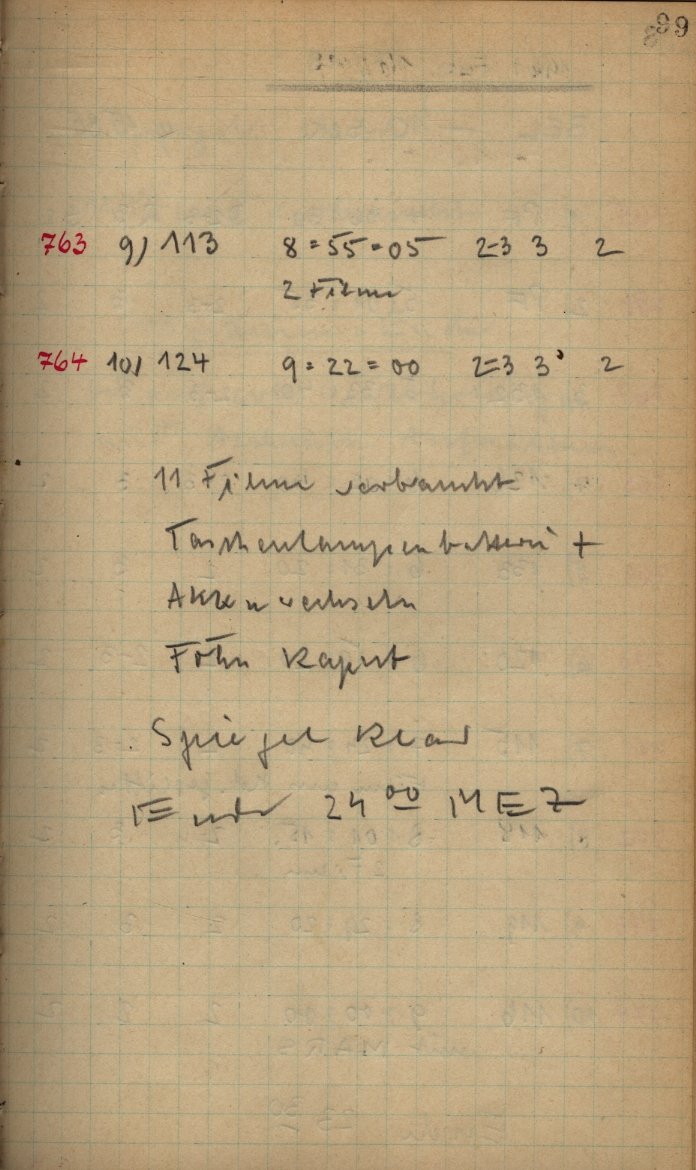 99
763 9) 113 8=55=05 2-3 3 2
2 Filme
764 10) 124 9=22=00 2=3 3 2
11 Filme verbraucht
Taschenlampenbatterie +
Akku wechseln
Föhn kaputt
Spiegel klar
Ende 24 00 MEZ